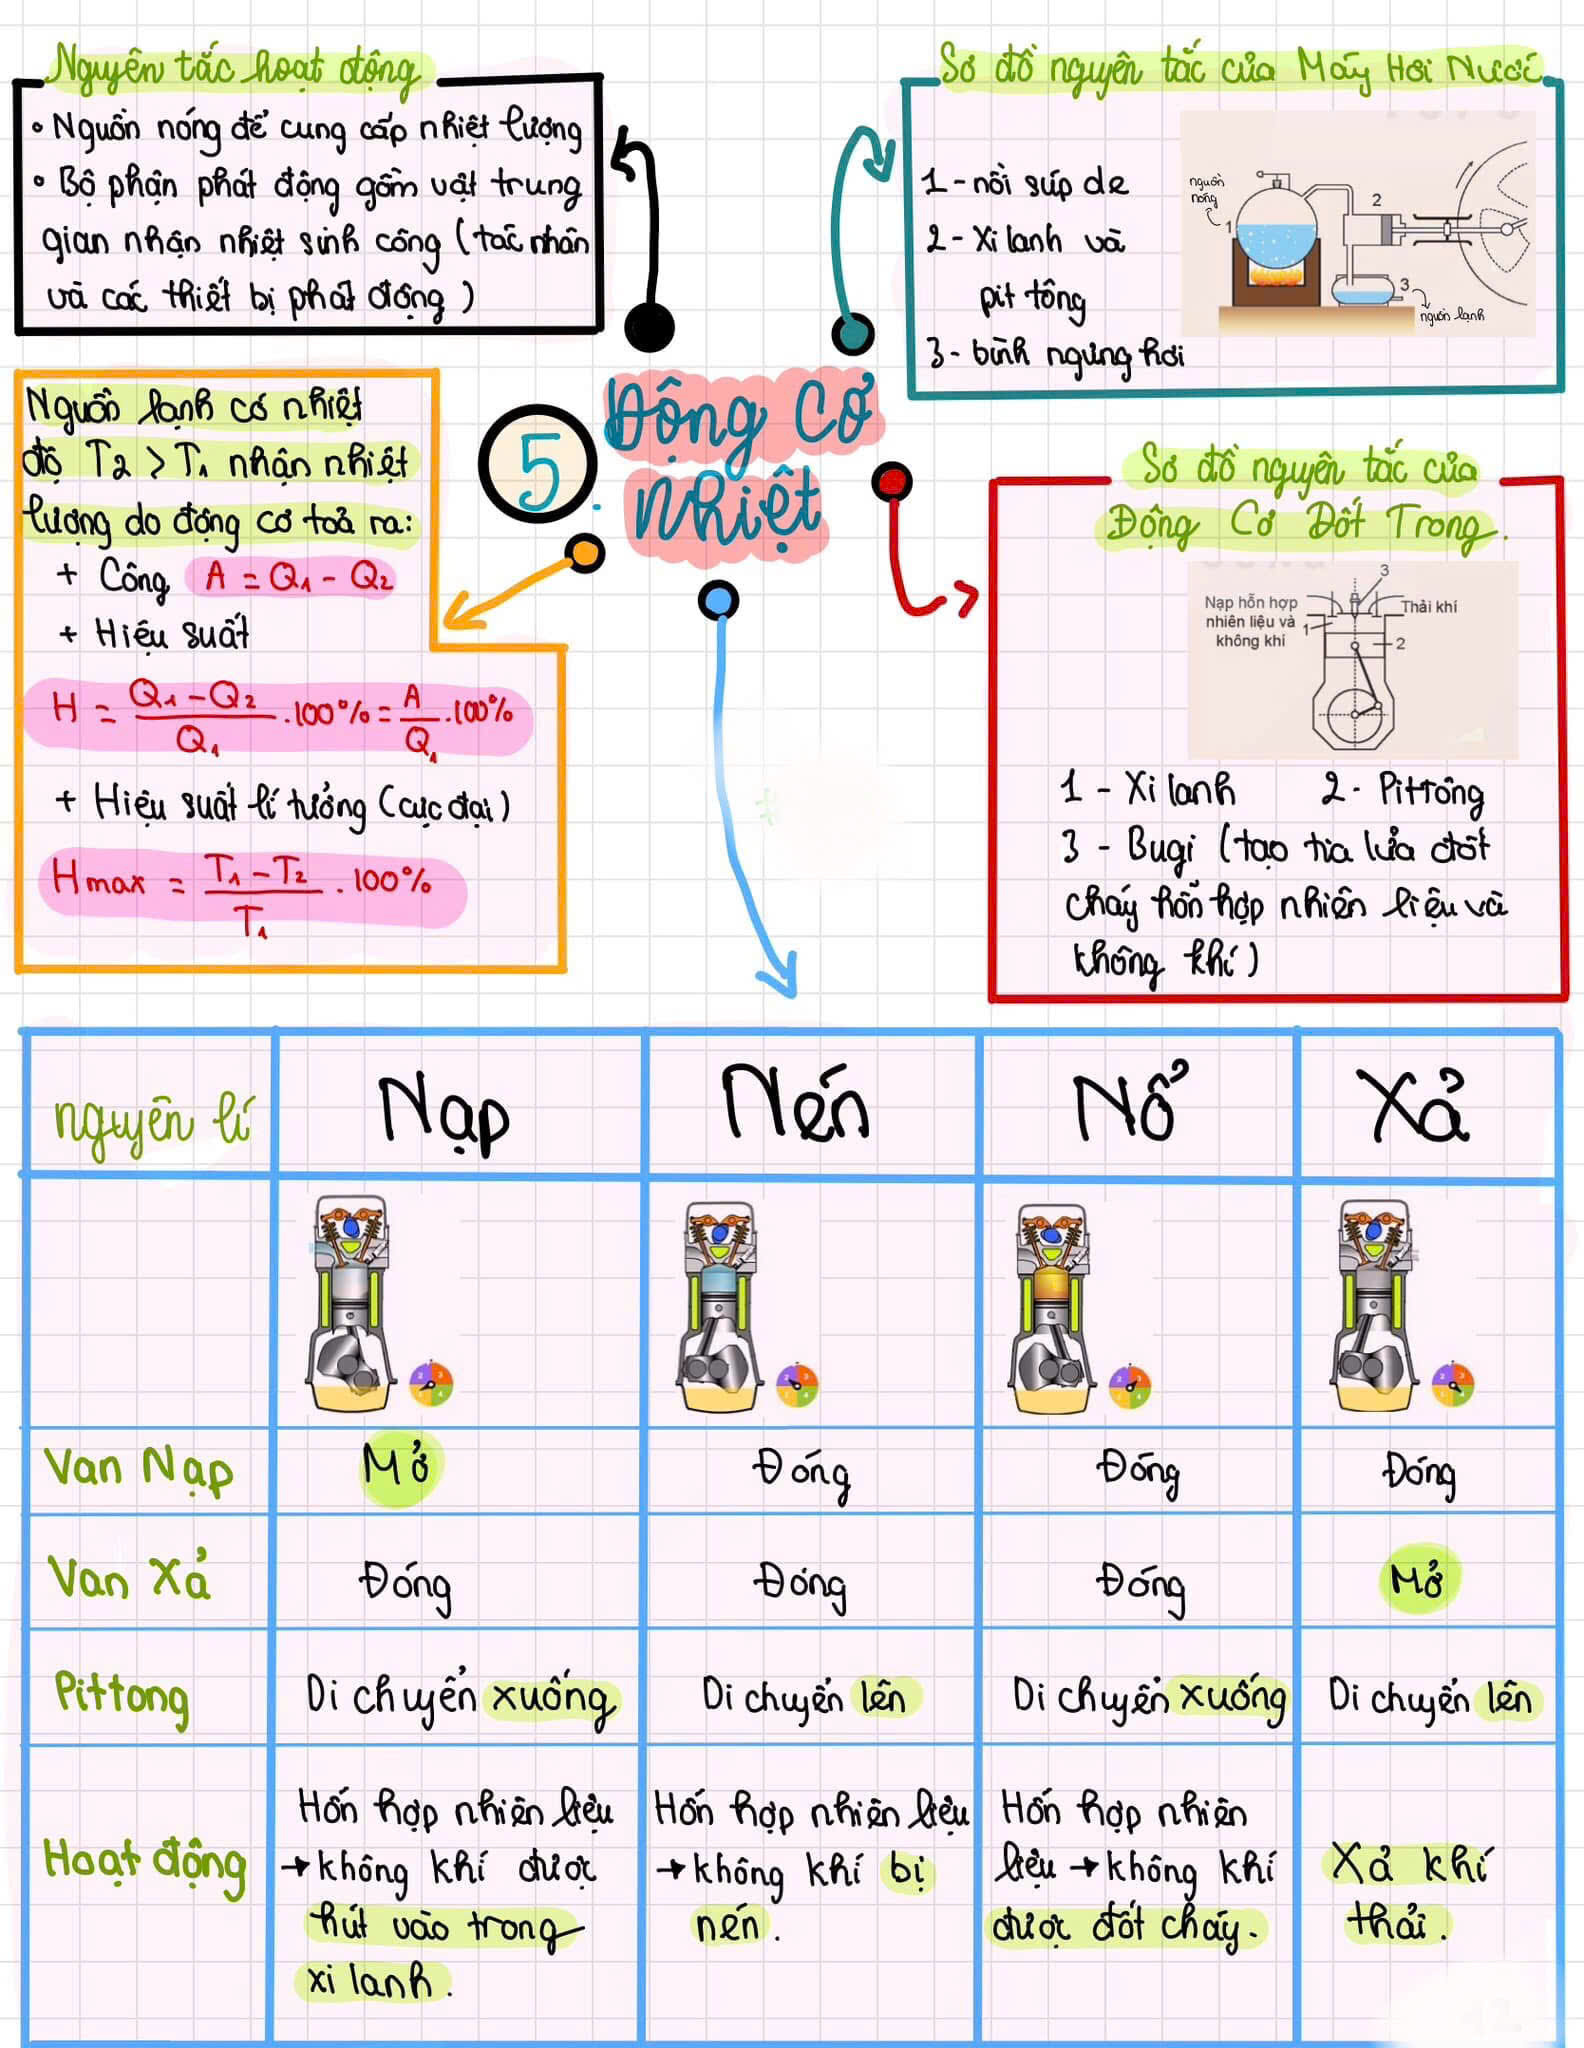 Nguyên tắc hoạt động
• Nguồn nóng để cung cấp nhiệt lượng
• Bộ phận phát động gồm vật trung
gian nhận nhiệt sinh công (tác nhân
và các thiết bị phát động)
Sơ đồ nguyên tắc của Máy Hơi Nước
1 - nồi súp de
2 - Xi lanh và
pit tông
3 - bình ngưng hơi
nguồn
nóng
1
2
3
nguồn lạnh
5.
Động Cơ
Nhiệt
Nguồn lạnh có nhiệt
độ T2 > T1 nhận nhiệt
lượng do động cơ toả ra:
+ Công A = Q1 - Q2
+ Hiệu suất
H = (Q1 - Q2)/Q1 . 100% = A/Q1 . 100%
+ Hiệu suất lí tưởng (cực đại)
Hmax = (T1 - T2)/T1 . 100%
Sơ đồ nguyên tắc của
Động Cơ Đốt Trong.
3
Nạp hỗn hợp
nhiên liệu và
không khí
Thải khí
1
2
1 - Xi lanh 2 - Pittông
3 - Bugi (tạo tia lửa đốt
cháy hỗn hợp nhiên liệu và
không khí)
nguyên lí Nạp Nén Nổ Xả
Van Nạp Mở Đóng Đóng Đóng
Van Xả Đóng Đóng Đóng Mở
Pittong Di chuyển xuống Di chuyển lên Di chuyển xuống Di chuyển lên
Hoạt động
Hỗn hợp nhiên liệu
→ không khí được
hút vào trong
xi lanh.
Hỗn hợp nhiên liệu
→ không khí bị
nén.
Hỗn hợp nhiên
liệu → không khí
được đốt cháy.
Xả khí
thải.